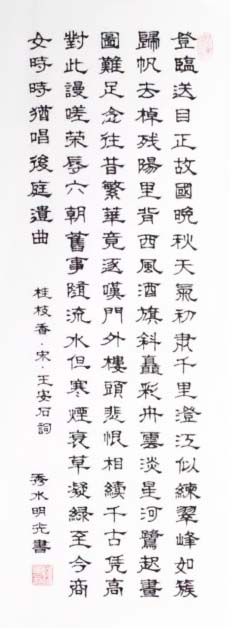 登臨送目正故國晚秋天氣初肅千里澄江似練翠峰如簇
歸帆去棹残陽里背西風酒旗斜矗彩舟雲淡星河鷺起畫
圖難足念往昔繁華竟逐嘆門外樓頭悲恨相續千古凭高
對此謾嗟榮辱六朝舊事隨流水但寒煙衰草凝綠至今商
女時時猶唱後庭遺曲
桂枝香·宋·王安石詞
秀水明書